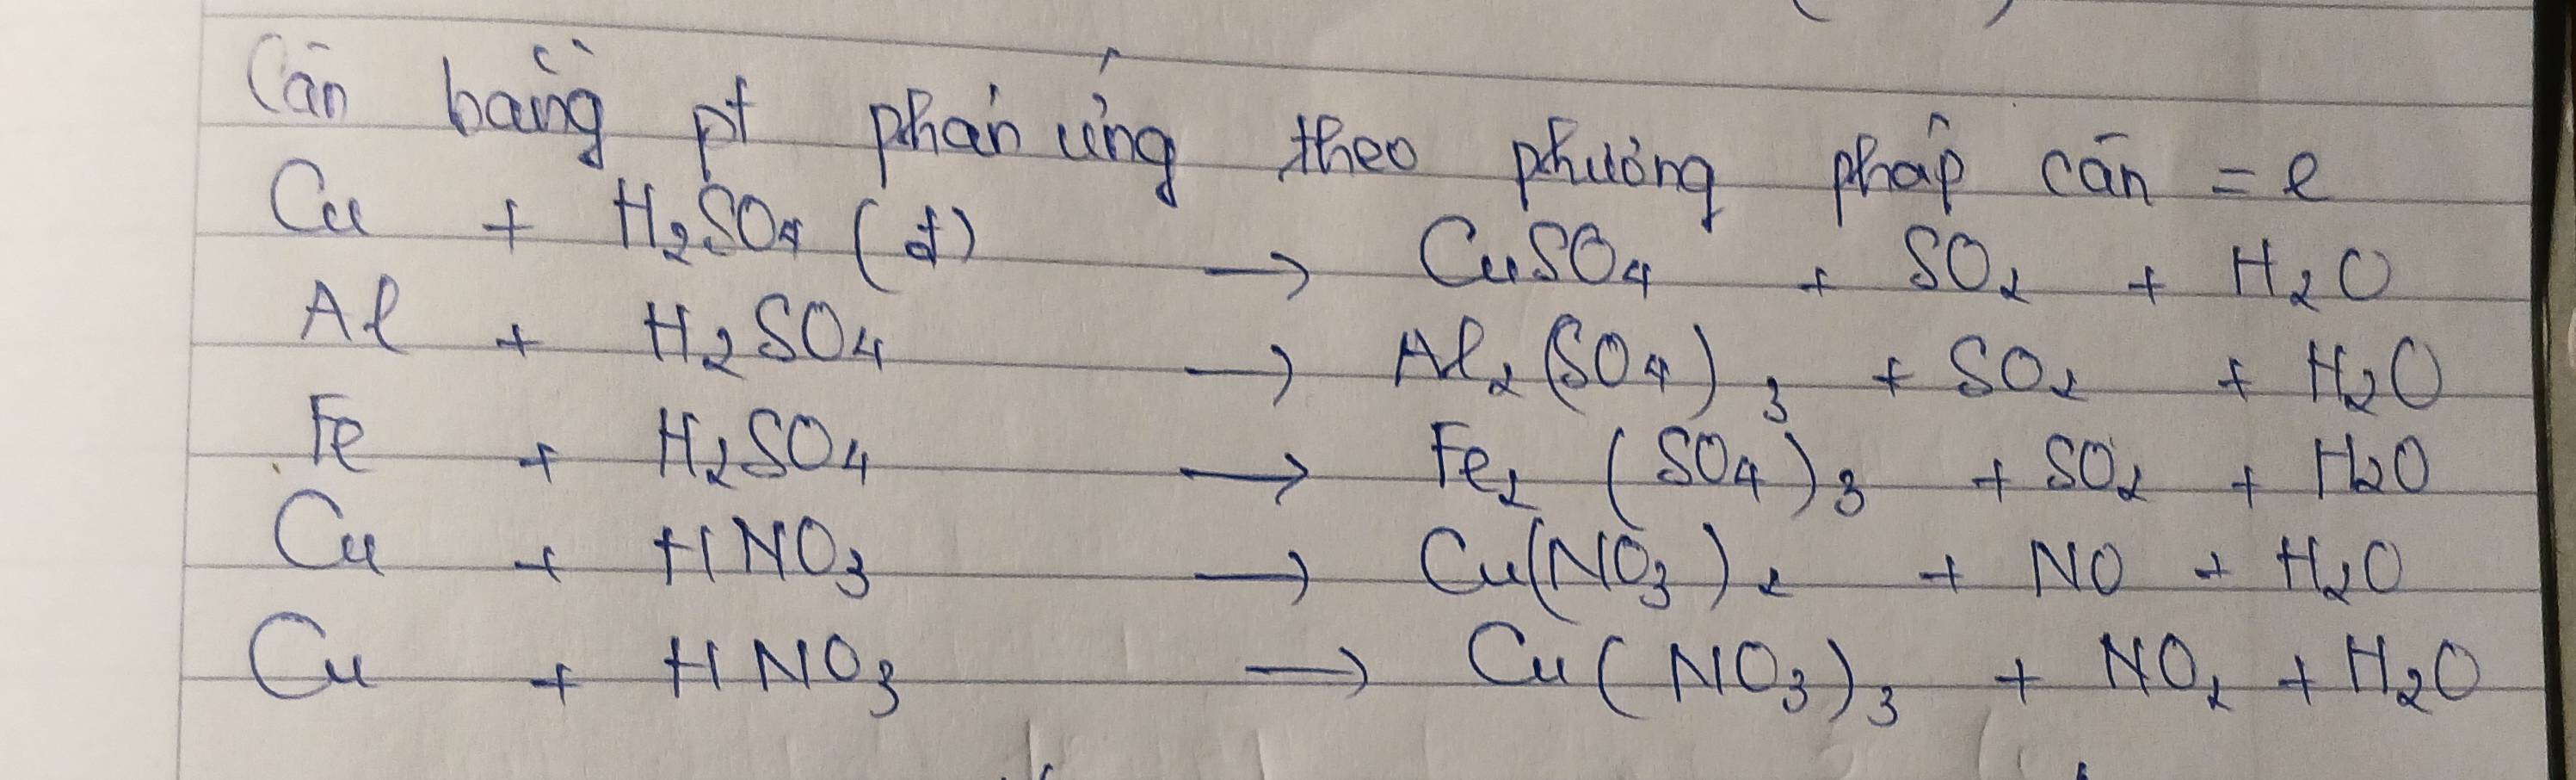 Cân bằng pt phản ứng theo phương pháp cân = e
Cu + H₂SO₄ (đ) → CuSO₄ + SO₂ + H₂O
Al + H₂SO₄ → Al₂(SO₄)₃ + SO₂ + H₂O
Fe + H₂SO₄ → Fe₂(SO₄)₃ + SO₂ + H₂O
Cu + HNO₃ → Cu(NO₃)₂ + NO + H₂O
Cu + HNO₃ → Cu(NO₃)₃ + NO₂ + H₂O